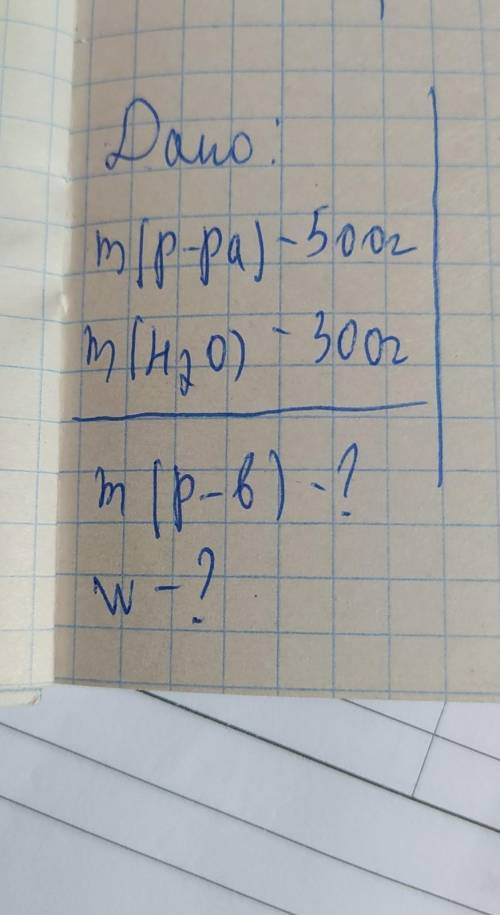 Дано:
m(р-ра) - 500г
m(H2O) - 300г
m(р-в) - ?
w - ?